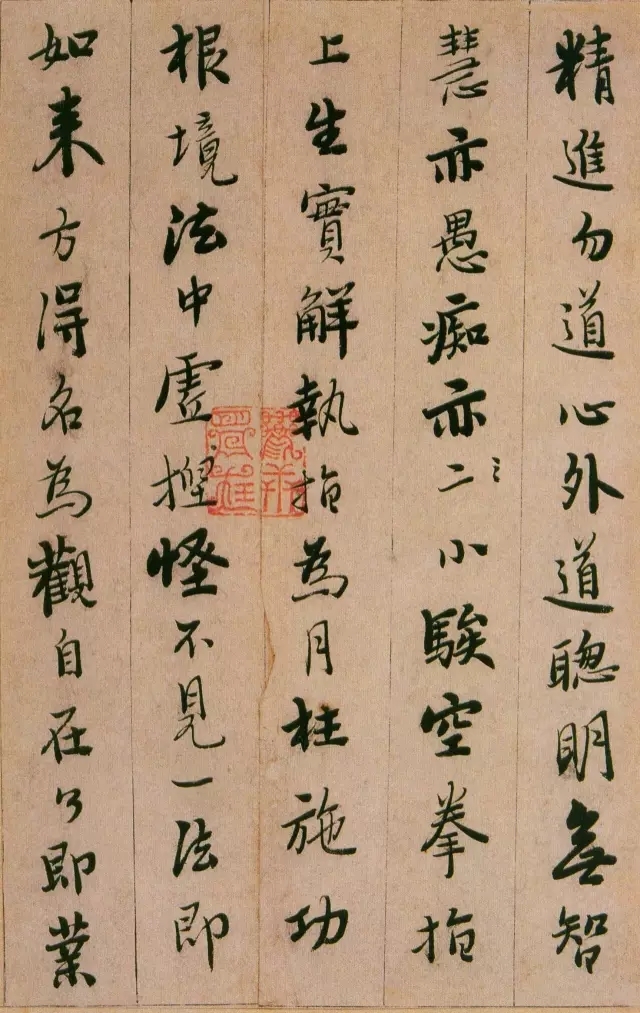 精進勿道心外道聰明無智
慧亦愚痴亦二小騃空拳指
上生實解執指為月枉施功
根境法中虛捏怪不見一法即
如来方得名為觀自在了即業